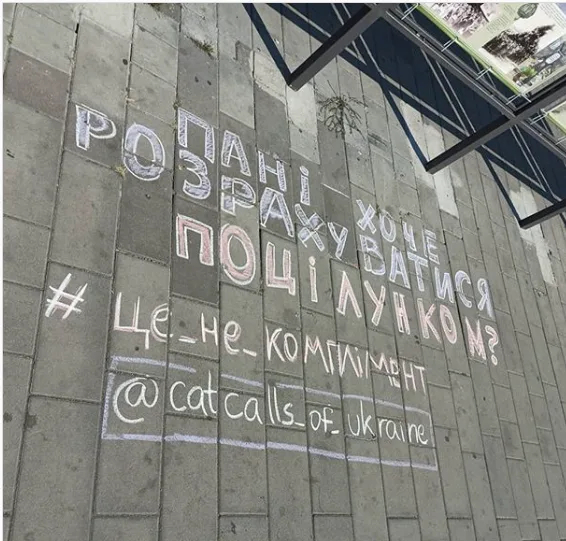 ПАНІ ХОЧЕ
РОЗРАХУВАТИСЯ
ПОЦІЛУНКОМ?
#ЦЕ_НЕ_КОМПЛІМЕНТ
@catcalls_of_ukraine